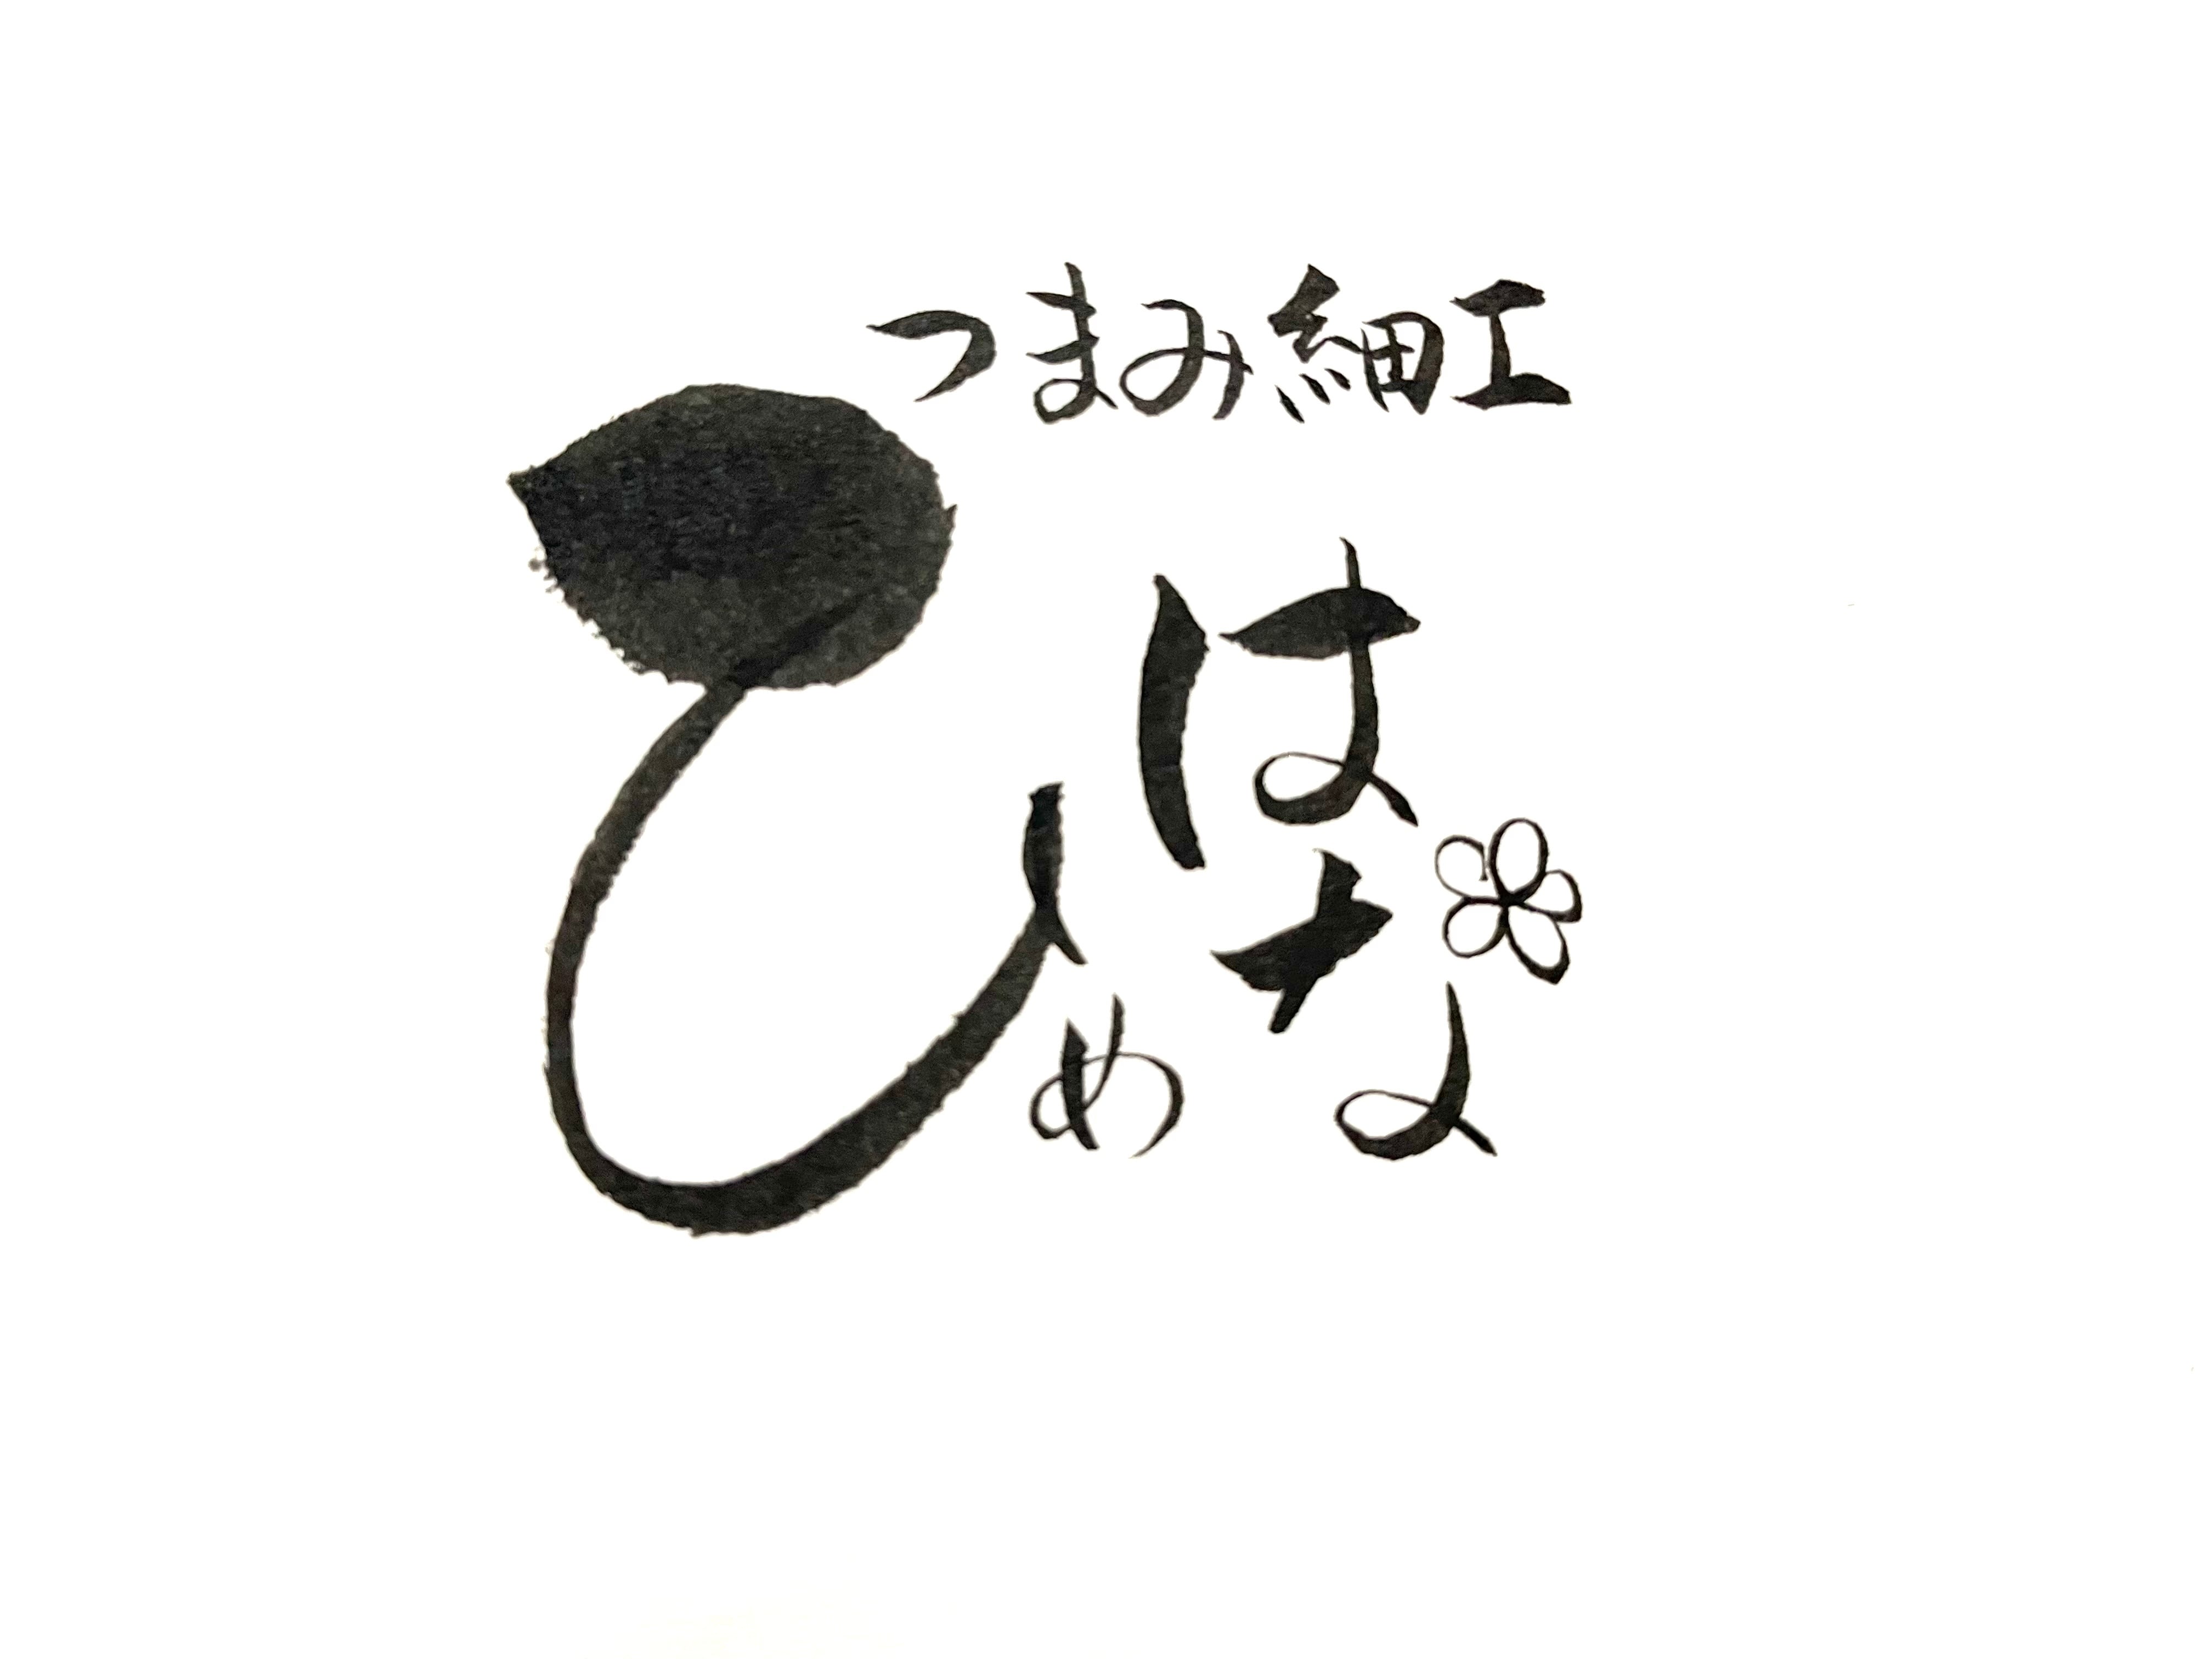 つまみ細工
はな
ひめ